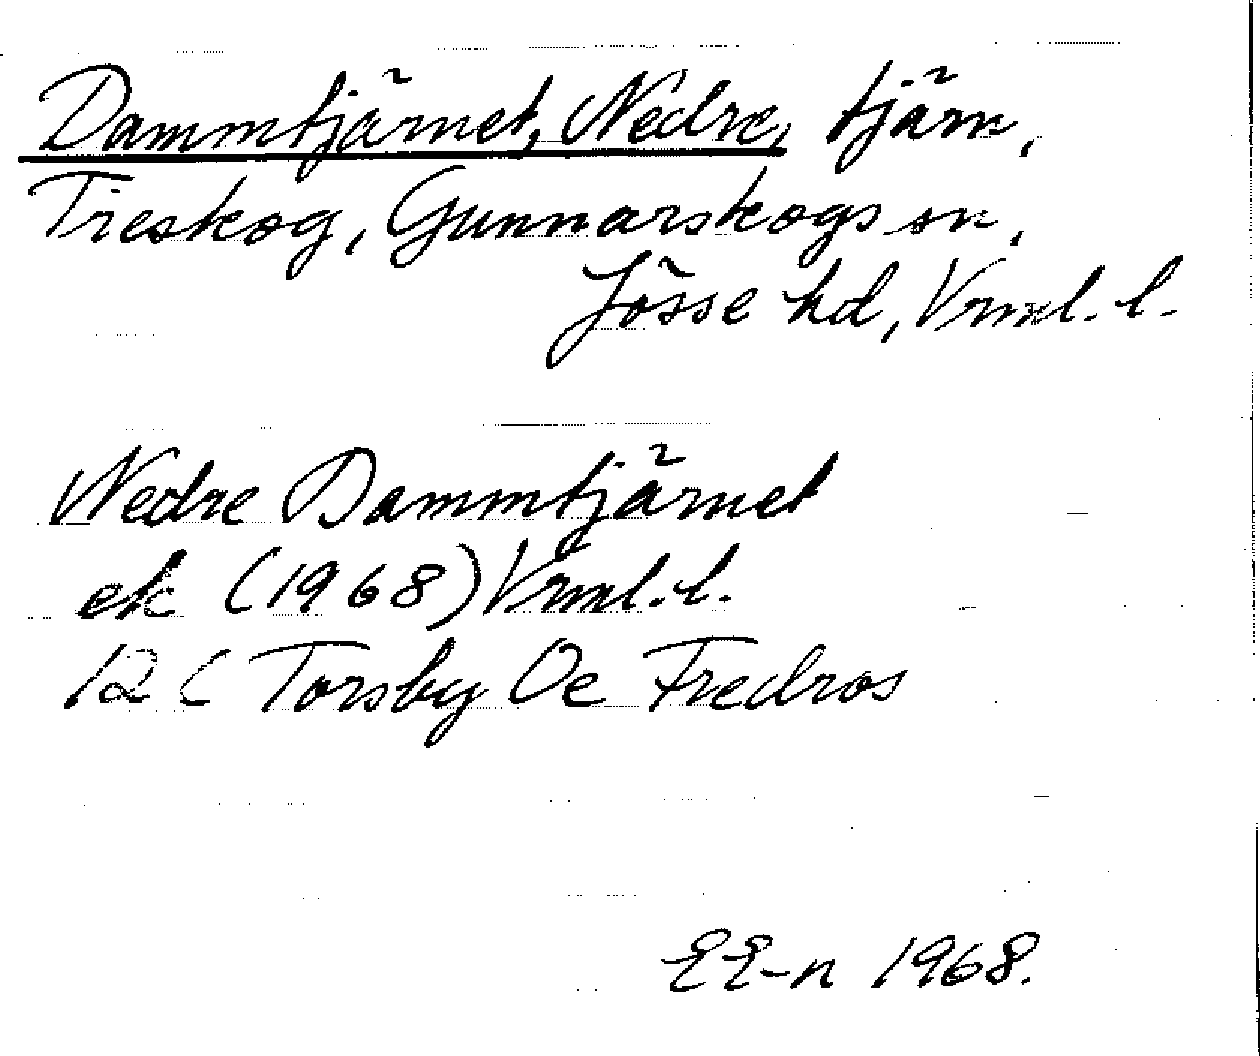 Dammtjärnet, Nedre, tjärn,
Treskog, Gunnarskogs sn,
Jösse hd, Vrml. l.
Nedre Dammtjärnet
ek (1968) Vrml. l.
12 C Torsby Oe Fredros
EE-n 1968.